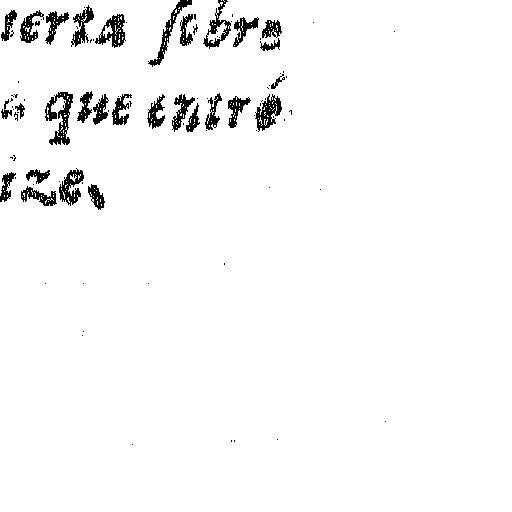 ierta ſobre
que entré
ize,